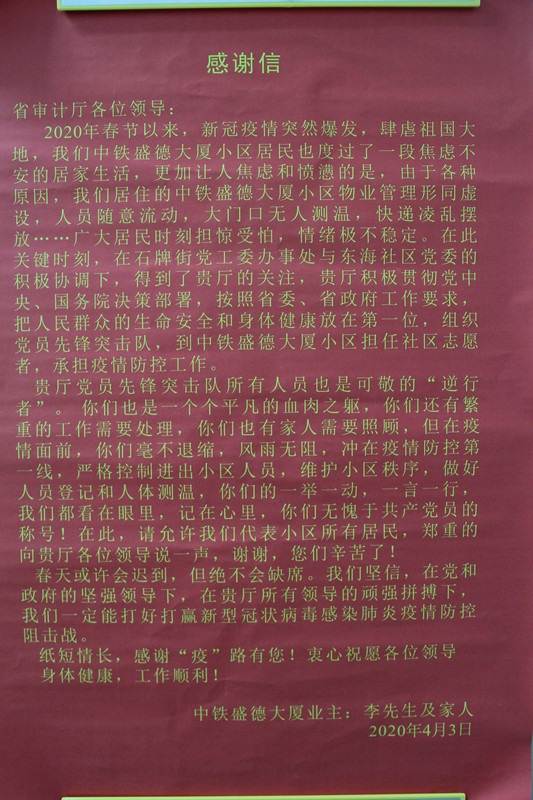 感谢信
省审计厅各位领导：
2020年春节以来，新冠疫情突然爆发，肆虐祖国大
地，我们中铁盛德大厦小区居民也度过了一段焦虑不
安的居家生活，更加让人焦虑和愤懑的是，由于各种
原因，我们居住的中铁盛德大厦小区物业管理形同虚
设，人员随意流动，大门口无人测温，快递凌乱摆
放……广大居民时刻担惊受怕，情绪极不稳定。在此
关键时刻，在石牌街党工委办事处与东海社区党委的
积极协调下，得到了贵厅的关注，贵厅积极贯彻党中
央、国务院决策部署，按照省委、省政府工作要求，
把人民群众的生命安全和身体健康放在第一位，组织
党员先锋突击队，到中铁盛德大厦小区担任社区志愿
者，承担疫情防控工作。
贵厅党员先锋突击队所有人员也是可敬的“逆行
者”。你们也是一个个平凡的血肉之躯，你们还有繁
重的工作需要处理，你们也有家人需要照顾，但在疫
情面前，你们毫不退缩，风雨无阻，冲在疫情防控第
一线，严格控制进出小区人员，维护小区秩序，做好
人员登记和人体测温，你们的一举一动，一言一行，
我们都看在眼里，记在心里，你们无愧于共产党员的
称号！在此，请允许我们代表小区所有居民，郑重的
向贵厅各位领导说一声，谢谢，您们辛苦了！
春天或许会迟到，但绝不会缺席。我们坚信，在党和
政府的坚强领导下，在贵厅所有领导的顽强拼搏下，
我们一定能打好打赢新型冠状病毒感染肺炎疫情防控
阻击战。
纸短情长，感谢“疫”路有您！衷心祝愿各位领导
身体健康，工作顺利！
中铁盛德大厦业主：李先生及家人
2020年4月3日